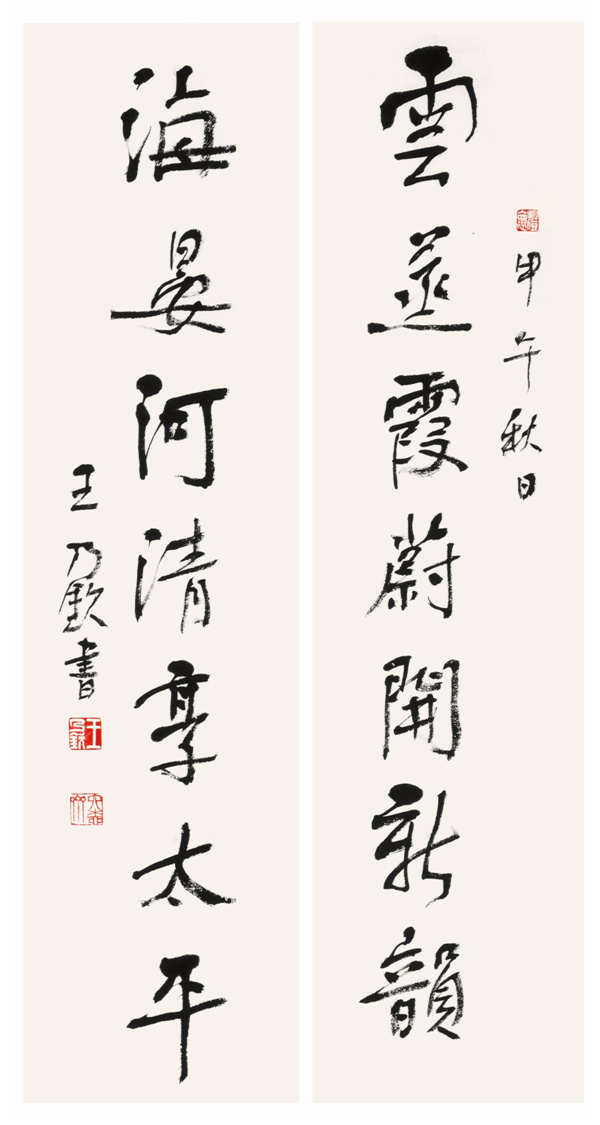 雲蒸霞蔚開新韻
甲午秋日
海晏河清享太平
王乃欽書